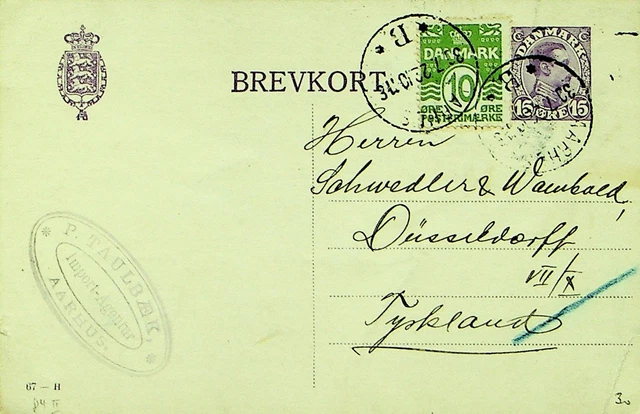 BREVKORT
DANMARK
10
ØRE ØRE
POSTFRIMÆRKE
DANMARK
15 ØRE 15
* B. *
AARHUS
Herren
Schwedler & Wambold,
Düsseldorff
VII/X
Tyskland
* P. TAULBÆK, *
Import-Agentur
AARHUS.
67 — H
30